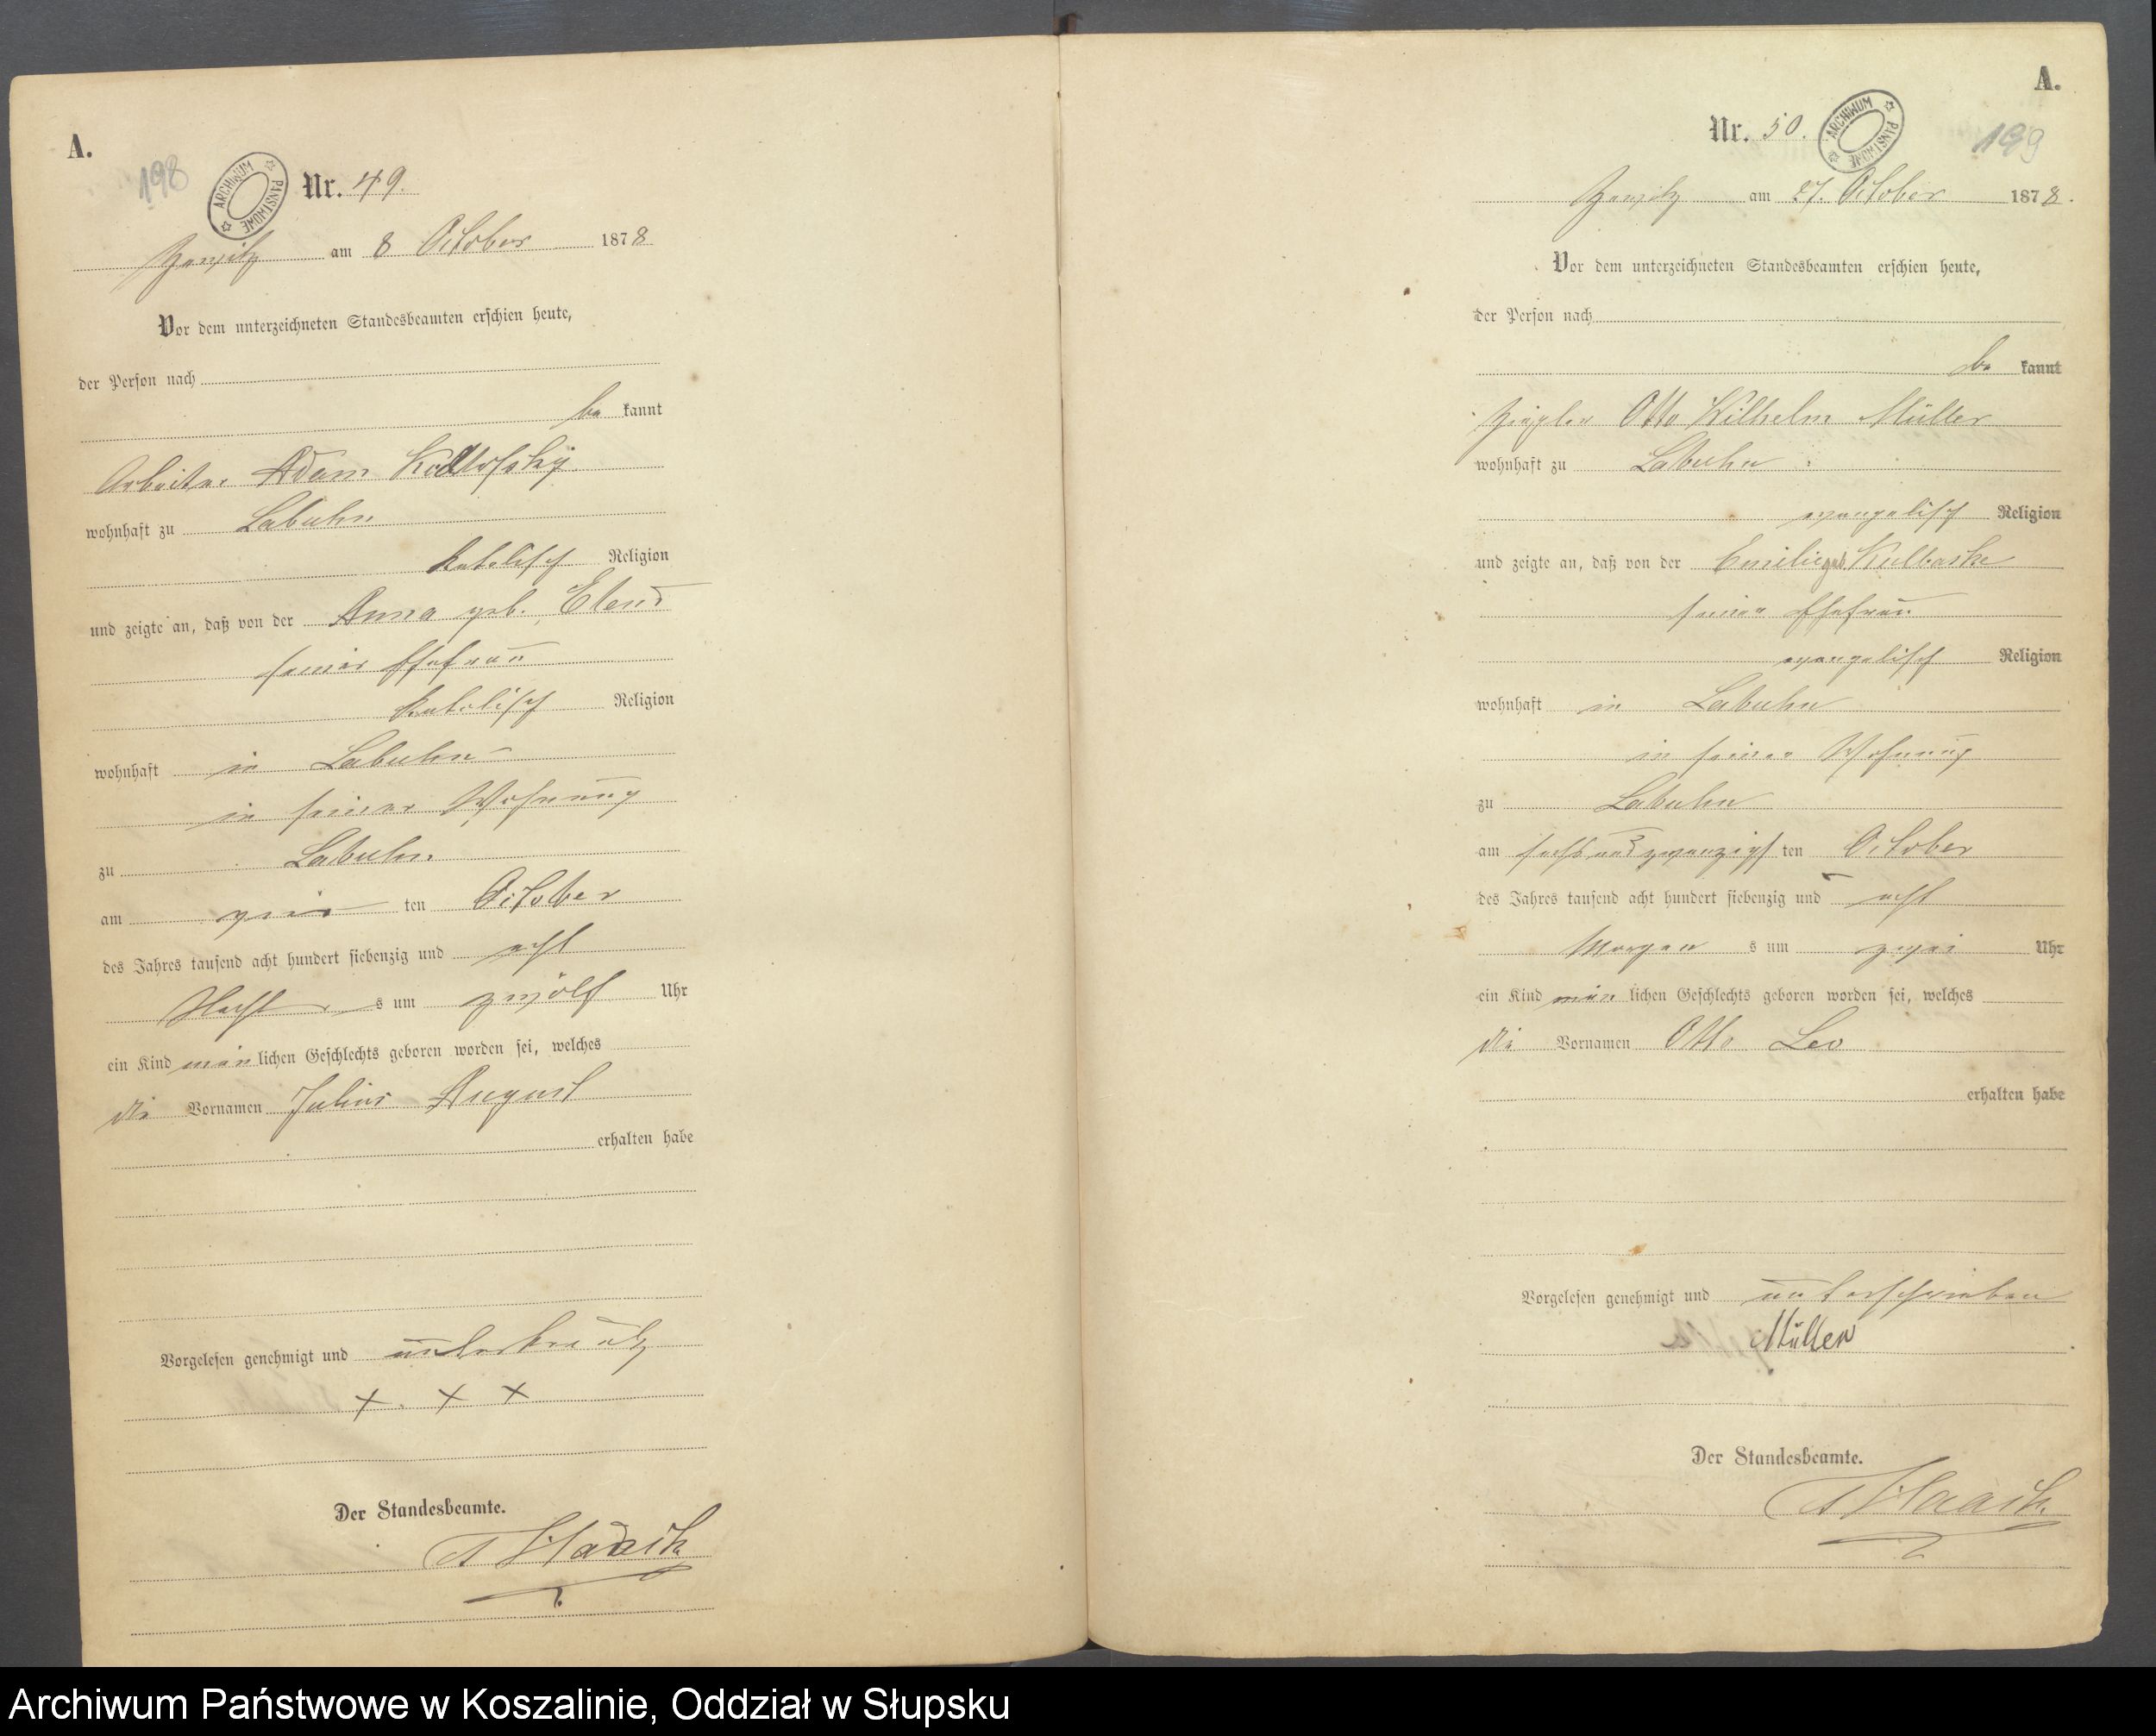 A.
198
ARCHIWUM PAŃSTWOWE
Nr. 49.
am 8 October 1878
Vor dem unterzeichneten Standesbeamten erschien heute,
der Person nach
be kannt
Arbeiter Adam
wohnhaft zu Labuhn
katolisch Religion
und zeigte an, daß von der Anna geb.
seiner Ehefrau
katolisch Religion
wohnhaft in Labuhn
in seiner Wohnung
zu Labuhn
am ten October
des Jahres tausend acht hundert siebenzig und acht
Nacht s um zwölf Uhr
ein Kind män lichen Geschlechts geboren worden sei, welches
die Vornamen Julius August
erhalten habe
Vorgelesen genehmigt und unterkreutz
+ + +
Der Standesbeamte.
A.
Nr. 50.
ARCHIWUM PAŃSTWOWE
199
am 27. October 1878.
Vor dem unterzeichneten Standesbeamten erschien heute,
der Person nach
be kannt
Ziegler Otto Wilhelm Müller
wohnhaft zu Labuhn
evangelisch Religion
und zeigte an, daß von der Emilie geb. Kulbaske
seiner Ehefrau
evangelisch Religion
wohnhaft in Labuhn
in seiner Wohnung
zu Labuhn
am sechsundzwanzigsten October
des Jahres tausend acht hundert siebenzig und acht
Morgen s um zwei Uhr
ein Kind män lichen Geschlechts geboren worden sei, welches
die Vornamen Otto Leo
erhalten habe
Vorgelesen genehmigt und unterschrieben
Müller
Der Standesbeamte.
Archiwum Państwowe w Koszalinie, Oddział w Słupsku